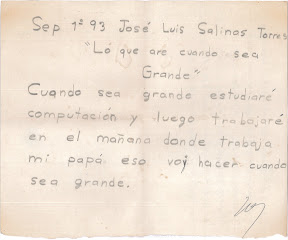 Sep 1º 93 José Luis Salinas Torres
"Lo que aré cuando sea
Grande"
Cuando sea grande estudiaré
computación y luego trabajaré
en el mañana donde trabaja
mi papá eso voy hacer cuando
sea grande.